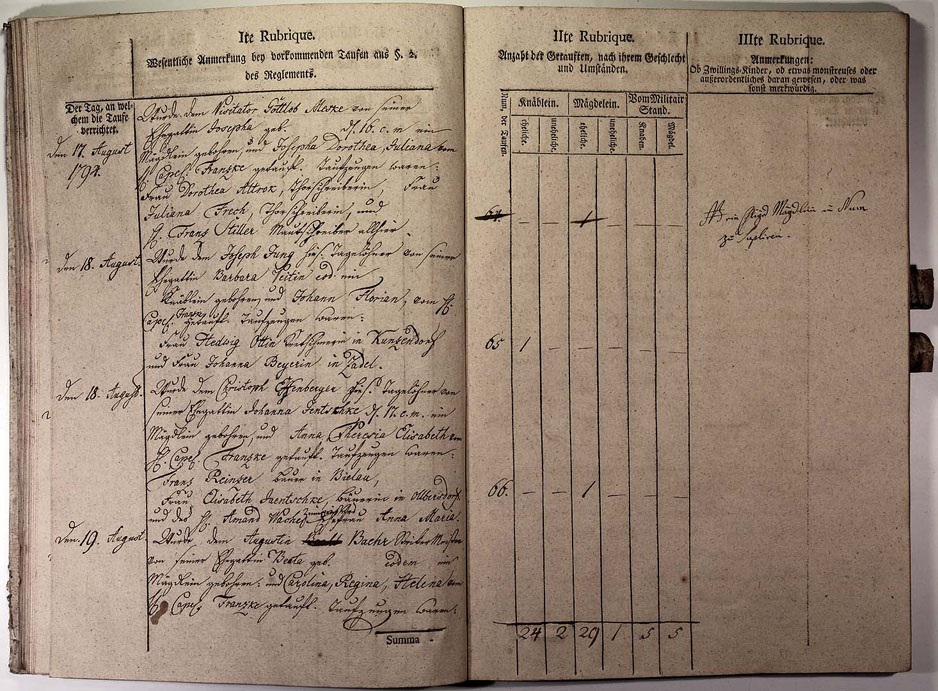 Ite Rubrique.
Wesentliche Anmerkung bey vorkommenden Taufen aus §. 2.
des Reglements.
Der Tag, an wel-
chem die Taufe
verrichtet.
den 17. August
1794.
Wurde dem Visitator Gottlob von seiner
Ehegattin Josepha geb. d. 16. c. m ein
Mägdlein gebohren, und Josepha Dorothea, Juliana vom
H. Capel. Franzke getauft. Taufzeugen waren:
Frau Dorothea Thorschreiberin, Frau
Juliana Frech, Thorschreiberin, und
H. Frans Stiller Mautschreiber allhier.
den 18. August.
Wurde dem Joseph Jung hies. Tagelöhner von seiner
Ehegattin Barbara eod. ein
Knäblein gebohren, und Johann Florian, vom H.
Capel. Franzke getauft. Taufzeugen waren:
Frau Hedwig in Kunzendorf
und Frau Johanna Beyerin in Zadel.
den 18. August.
Wurde dem Christoph Effenberger hies. Tagelöhner von
seiner Ehegattin Johanna Jentschke d. 17. c. m. ein
Mägdlein gebohren, und Anna Theresia Elisabeth vom
H. Capel. Franzke getauft. Taufzeugen waren:
Frans Reinzer Bauer in Bielau,
Frau Elisabeth Jaentschke, Bäuerin in Olbersdorf
und des H. Amand Ehefrau Anna Maria.
den 19. August
Wurde dem Augustin Bachr
von seiner Ehegattin Beata geb. eodem ein
Mägdlein gebohren. und Carolina, Regina, Helena vom
H. Capel. Franzke getauft. Taufzeugen waren:
Summa
IIte Rubrique.
Anzahl der Getauften, nach ihrem Geschlecht
und Umständen.
Num. der Taufen.
Knäblein. Mägdelein. Vom Militair Stand.
eheliche. uneheliche. eheliche. uneheliche. Knaben. Mägdel.
64. — — 1 — — —
65 1 — — — — —
66. — — 1 — — —
24 2 29 1 5 5
IIIte Rubrique.
Anmerkungen:
Ob Zwillings-Kinder, ob etwas monstreuses oder
außerordentliches daran gewesen, oder was
sonst merkwürdig.
ein Mägdlein
zu